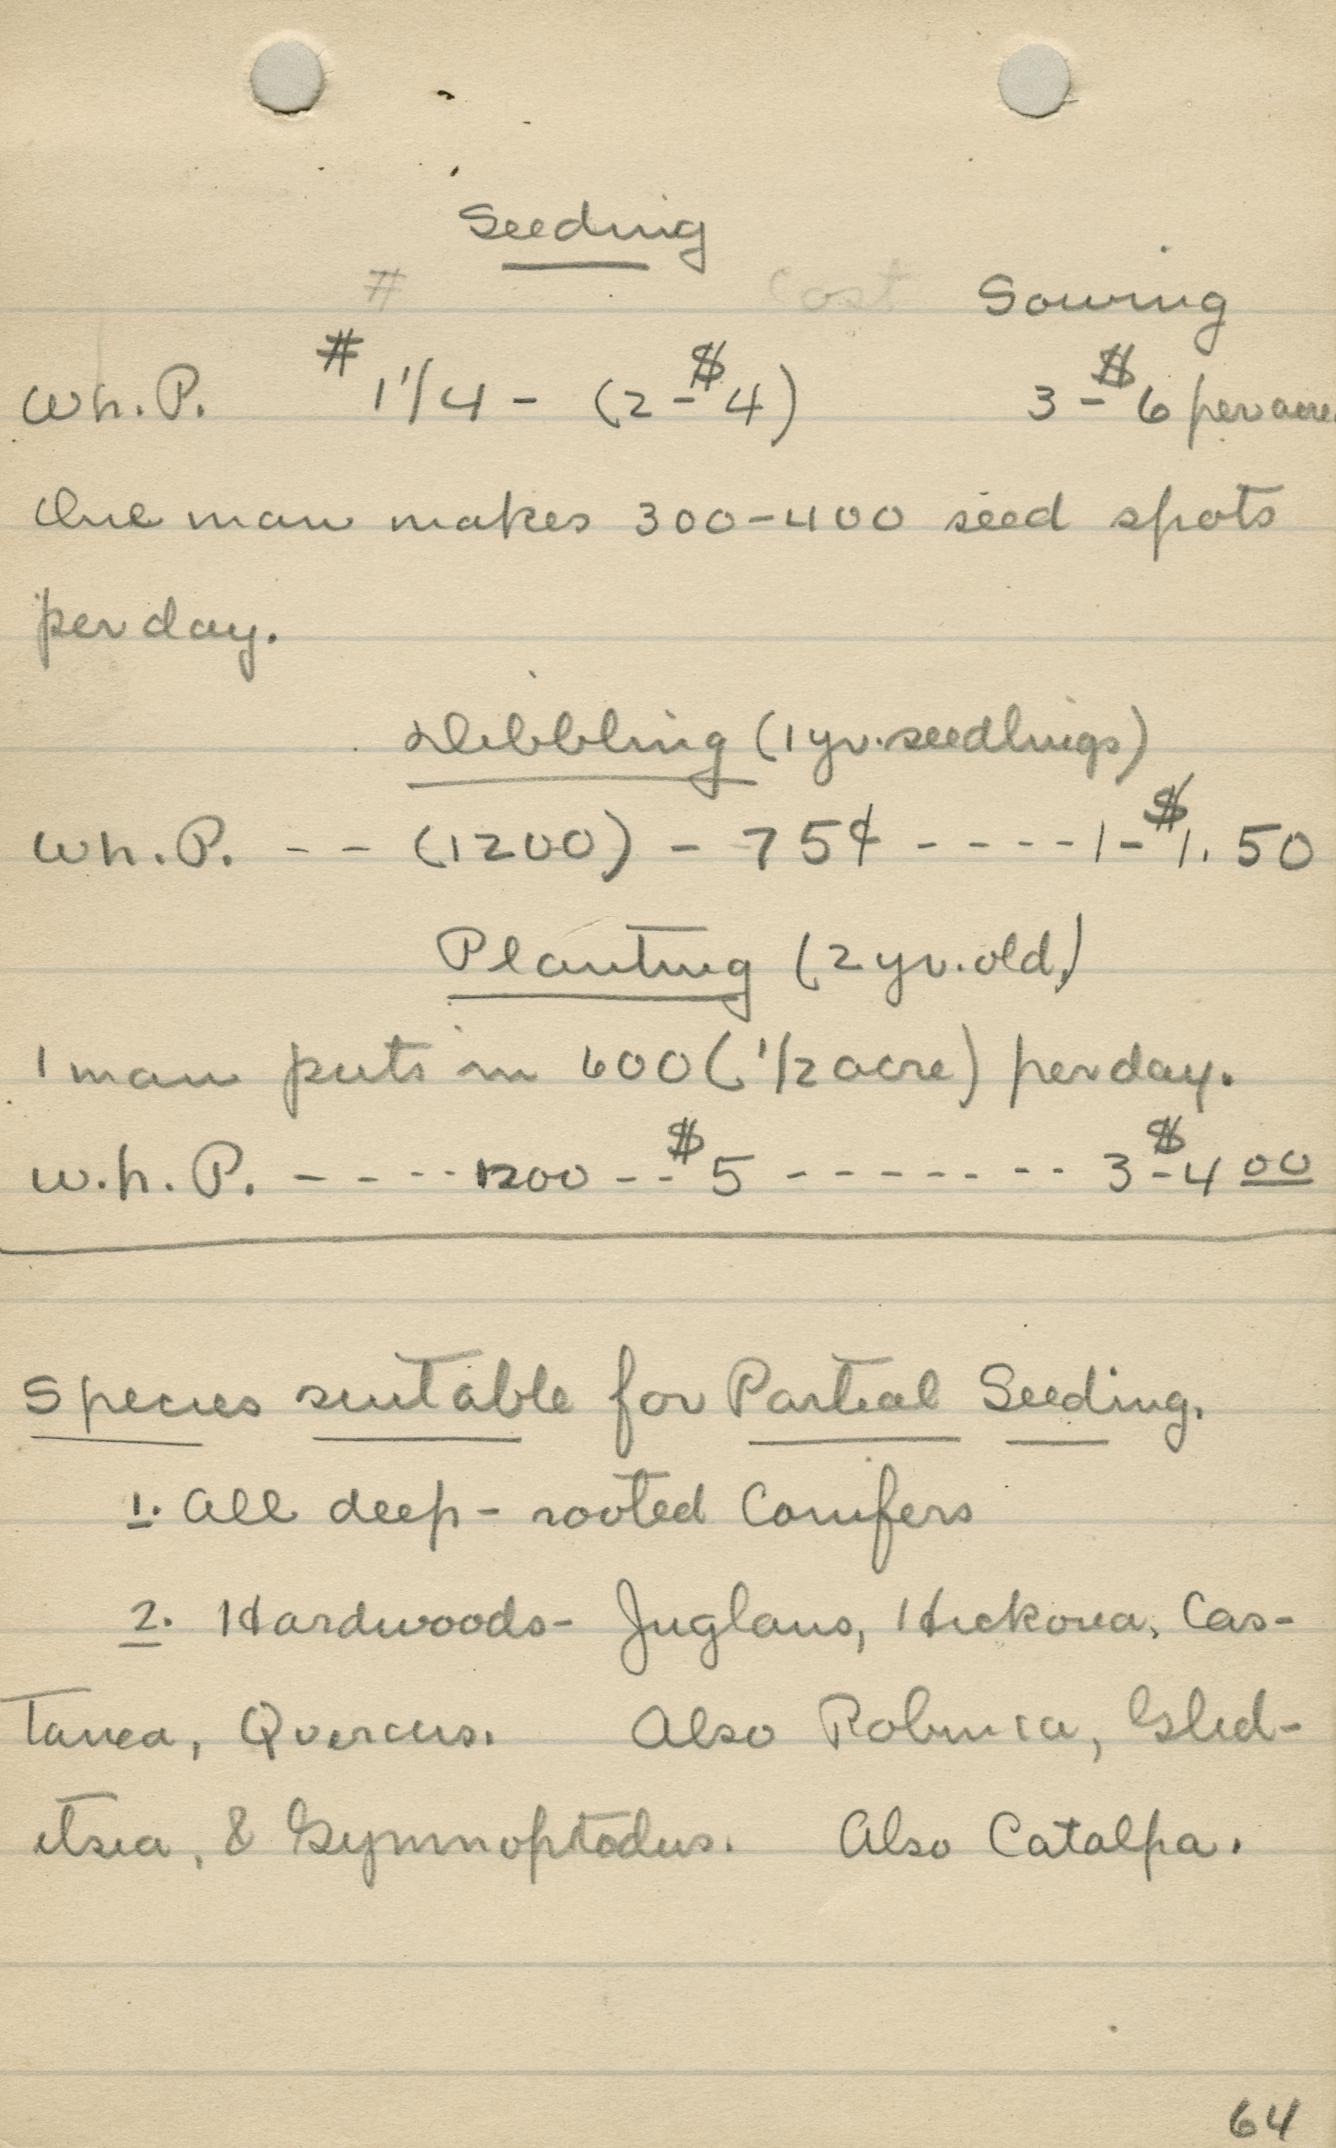 Seeding
# Cost Sowing
Wh. P. # 1 1/4 - (2 - $4) 3 - $6 per acre.
One man makes 300-400 seed spots
per day.
Dibbling (1 yr. seedlings)
Wh. P. -- (1200) - 75¢ ---- 1 - $1.50
Planting (2 yr. old)
1 man puts in 600 (1/2 acre) per day.
w.h. P. ---- 1200 -- $5 -------- 3 - $4 00
Species suitable for Partial Seeding.
1. All deep-rooted Conifers
2. Hardwoods - Juglans, Hickoria, Cas-
tanea, Quercus. Also Robinia, Gled-
itsia, & Gymnoptodus. Also Catalpa.
64